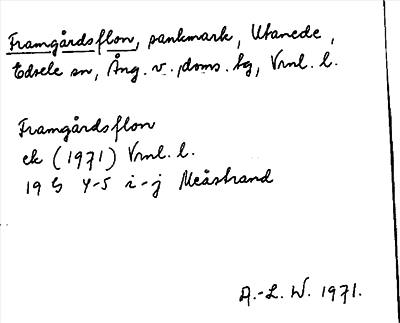 Framgårdsflon, sankmark, Utanede,
Edsele sn, Ång. v. doms. tg, Vnnl. l.
Framgårdsflon
ek (1971) Vnnl. l.
19 G 4-5 i-j Meåstrand
A.-L. W. 1971.